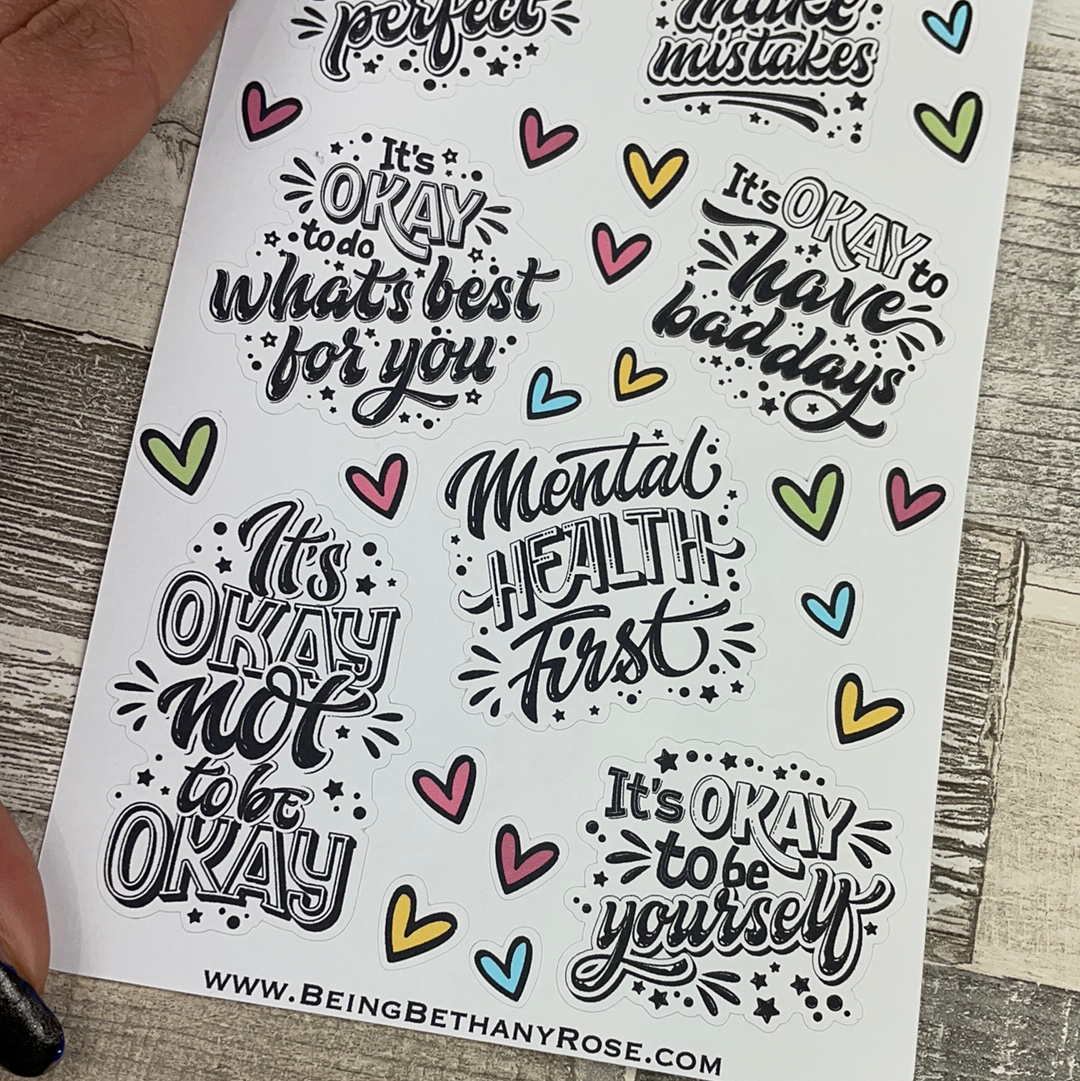 perfect
make
mistakes
It's
OKAY
to do
what's best
for you
It's OKAY to
have
bad days
Mental
HEALTH
First
It's
OKAY
not
to be
OKAY
It's OKAY
to be
yourself
www.BeingBethanyRose.com